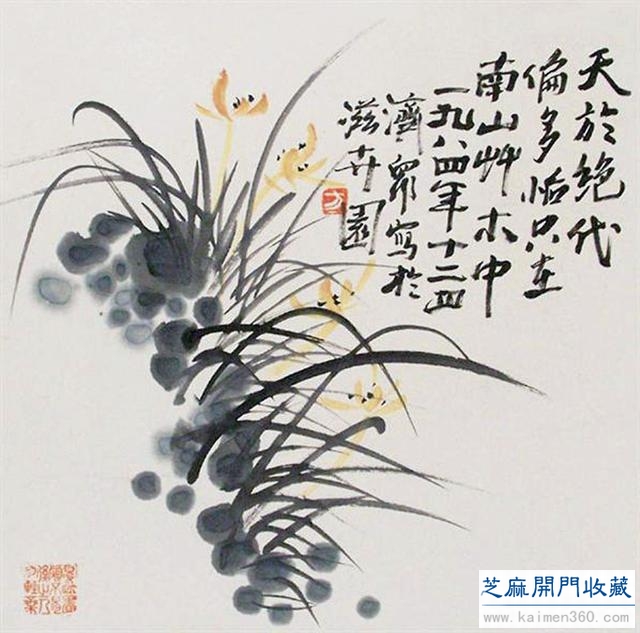 天於絶代
偏多妬只在
南山艸木中
一九八四年十二月
濟眾寫於
滋卉園
方
芝麻開門收藏
www.kaimen360.com